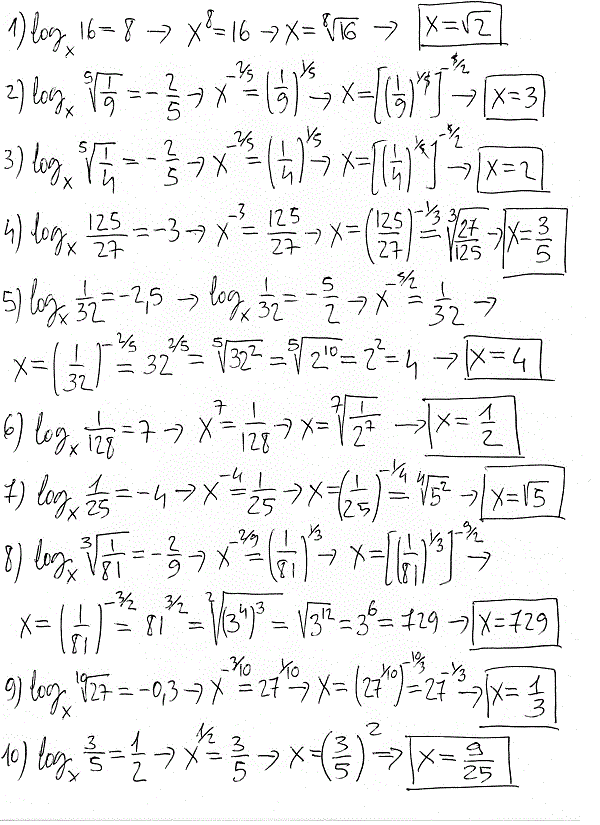 1) log_x 16 = 8 → x^8 = 16 → x = ⁸√16 → x = √2
2) log_x ⁵√(1/9) = -2/5 → x^(-2/5) = (1/9)^(1/5) → x = [(1/9)^(1/5)]^(-5/2) → x = 3
3) log_x ⁵√(1/4) = -2/5 → x^(-2/5) = (1/4)^(1/5) → x = [(1/4)^(1/5)]^(-5/2) → x = 2
4) log_x 125/27 = -3 → x^(-3) = 125/27 → x = (125/27)^(-1/3) = ³√(27/125) → x = 3/5
5) log_x 1/32 = -2,5 → log_x 1/32 = -5/2 → x^(-5/2) = 1/32 →
x = (1/32)^(-2/5) = 32^(2/5) = ⁵√(32²) = ⁵√(2^10) = 2² = 4 → x = 4
6) log_x 1/128 = 7 → x^7 = 1/128 → x = ⁷√(1/2^7) → x = 1/2
7) log_x 1/25 = -4 → x^(-4) = 1/25 → x = (1/25)^(-1/4) = ⁴√(5²) → x = √5
8) log_x ³√(1/81) = -2/9 → x^(-2/9) = (1/81)^(1/3) → x = [(1/81)^(1/3)]^(-9/2) →
x = (1/81)^(-3/2) = 81^(3/2) = ²√((3^4)^3) = √(3^12) = 3^6 = 729 → x = 729
9) log_x ¹⁰√27 = -0,3 → x^(-3/10) = 27^(1/10) → x = (27^(1/10))^(-10/3) = 27^(-1/3) → x = 1/3
10) log_x 3/5 = 1/2 → x^(1/2) = 3/5 → x = (3/5)^2 ⇒ x = 9/25